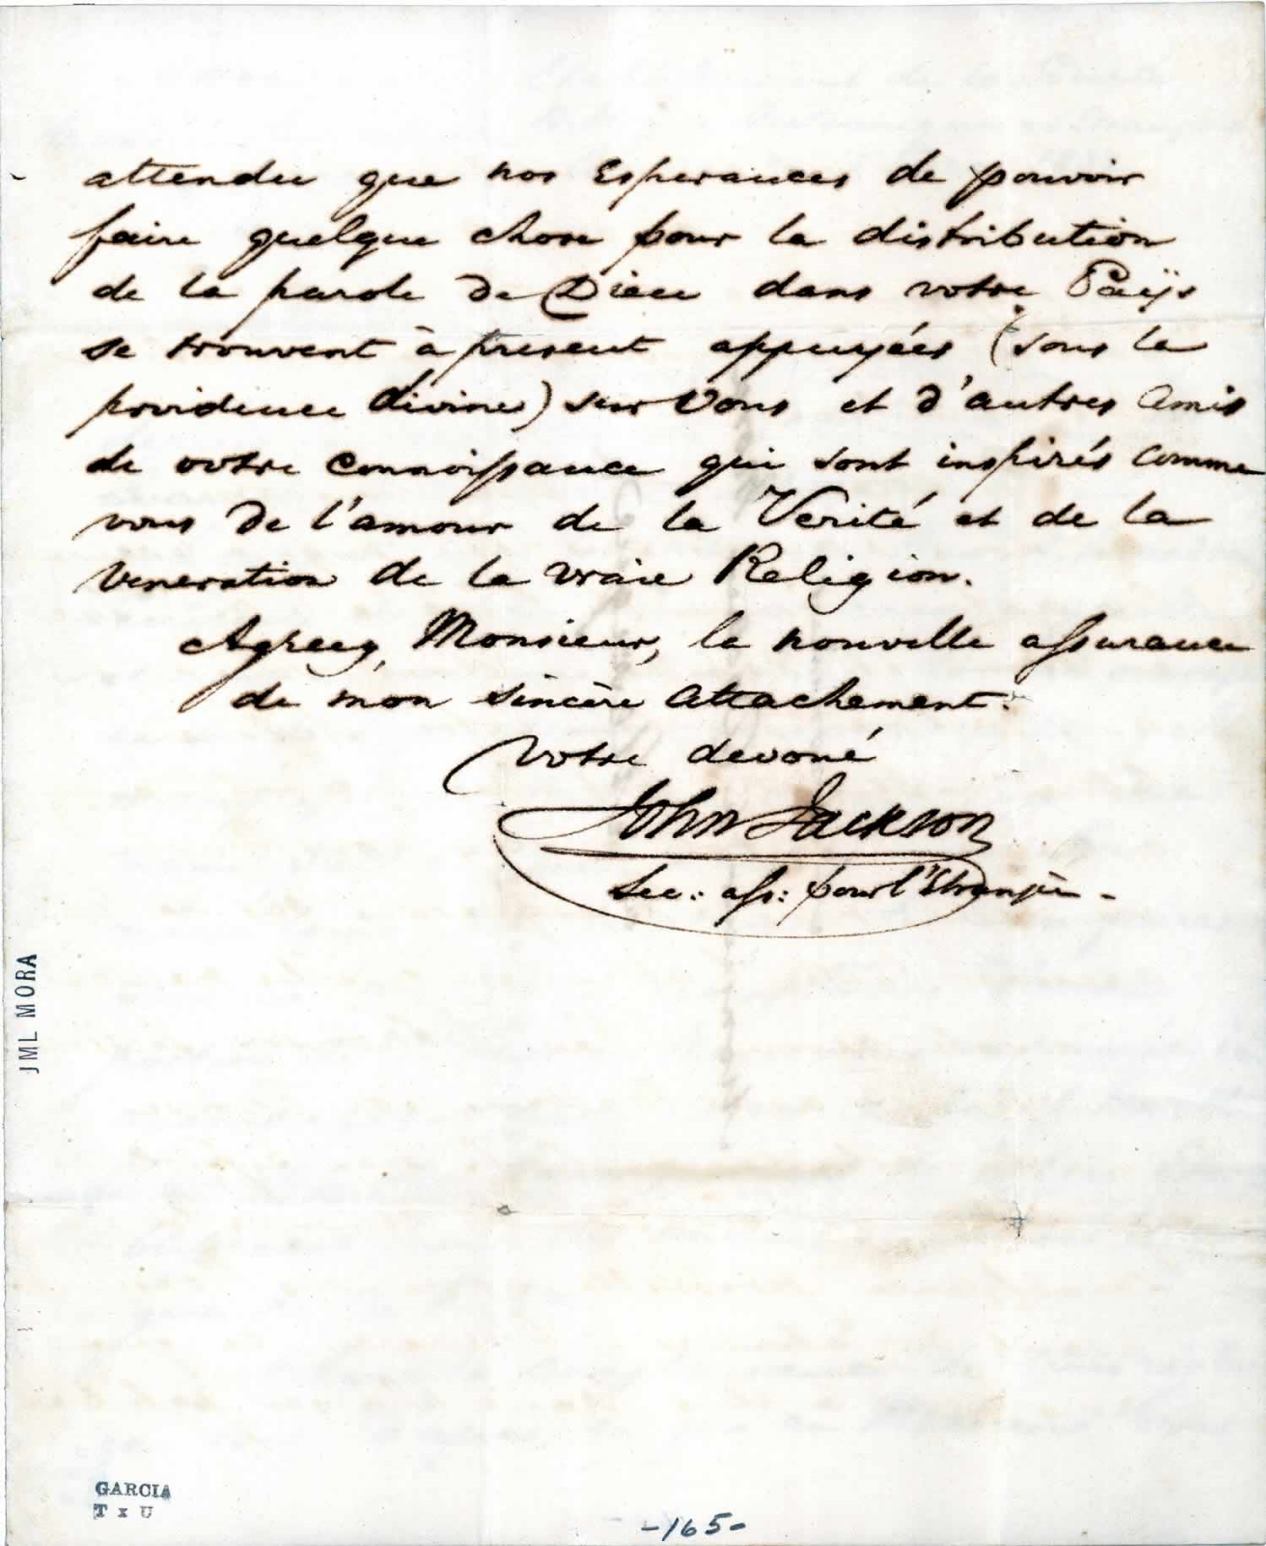 attendu que nos Esperances de pouvoir
faire quelque chose pour la distribution
de la parole de Dieu dans votre Païs
se trouvent à present appuyées (sous la
providence divine) sur Vous et d'autres Amis
de votre Connoissance qui sont inspirés comme
vous de l'amour de la Verité et de la
Veneration de la vraie Religion.
Agreez, Monsieur, la nouvelle assurance
de mon sincère Attachement.
Votre devoué
John Jackson
Sec: ass: pour l'Etrangèr -
JML MORA
GARCIA
T x U
-165-